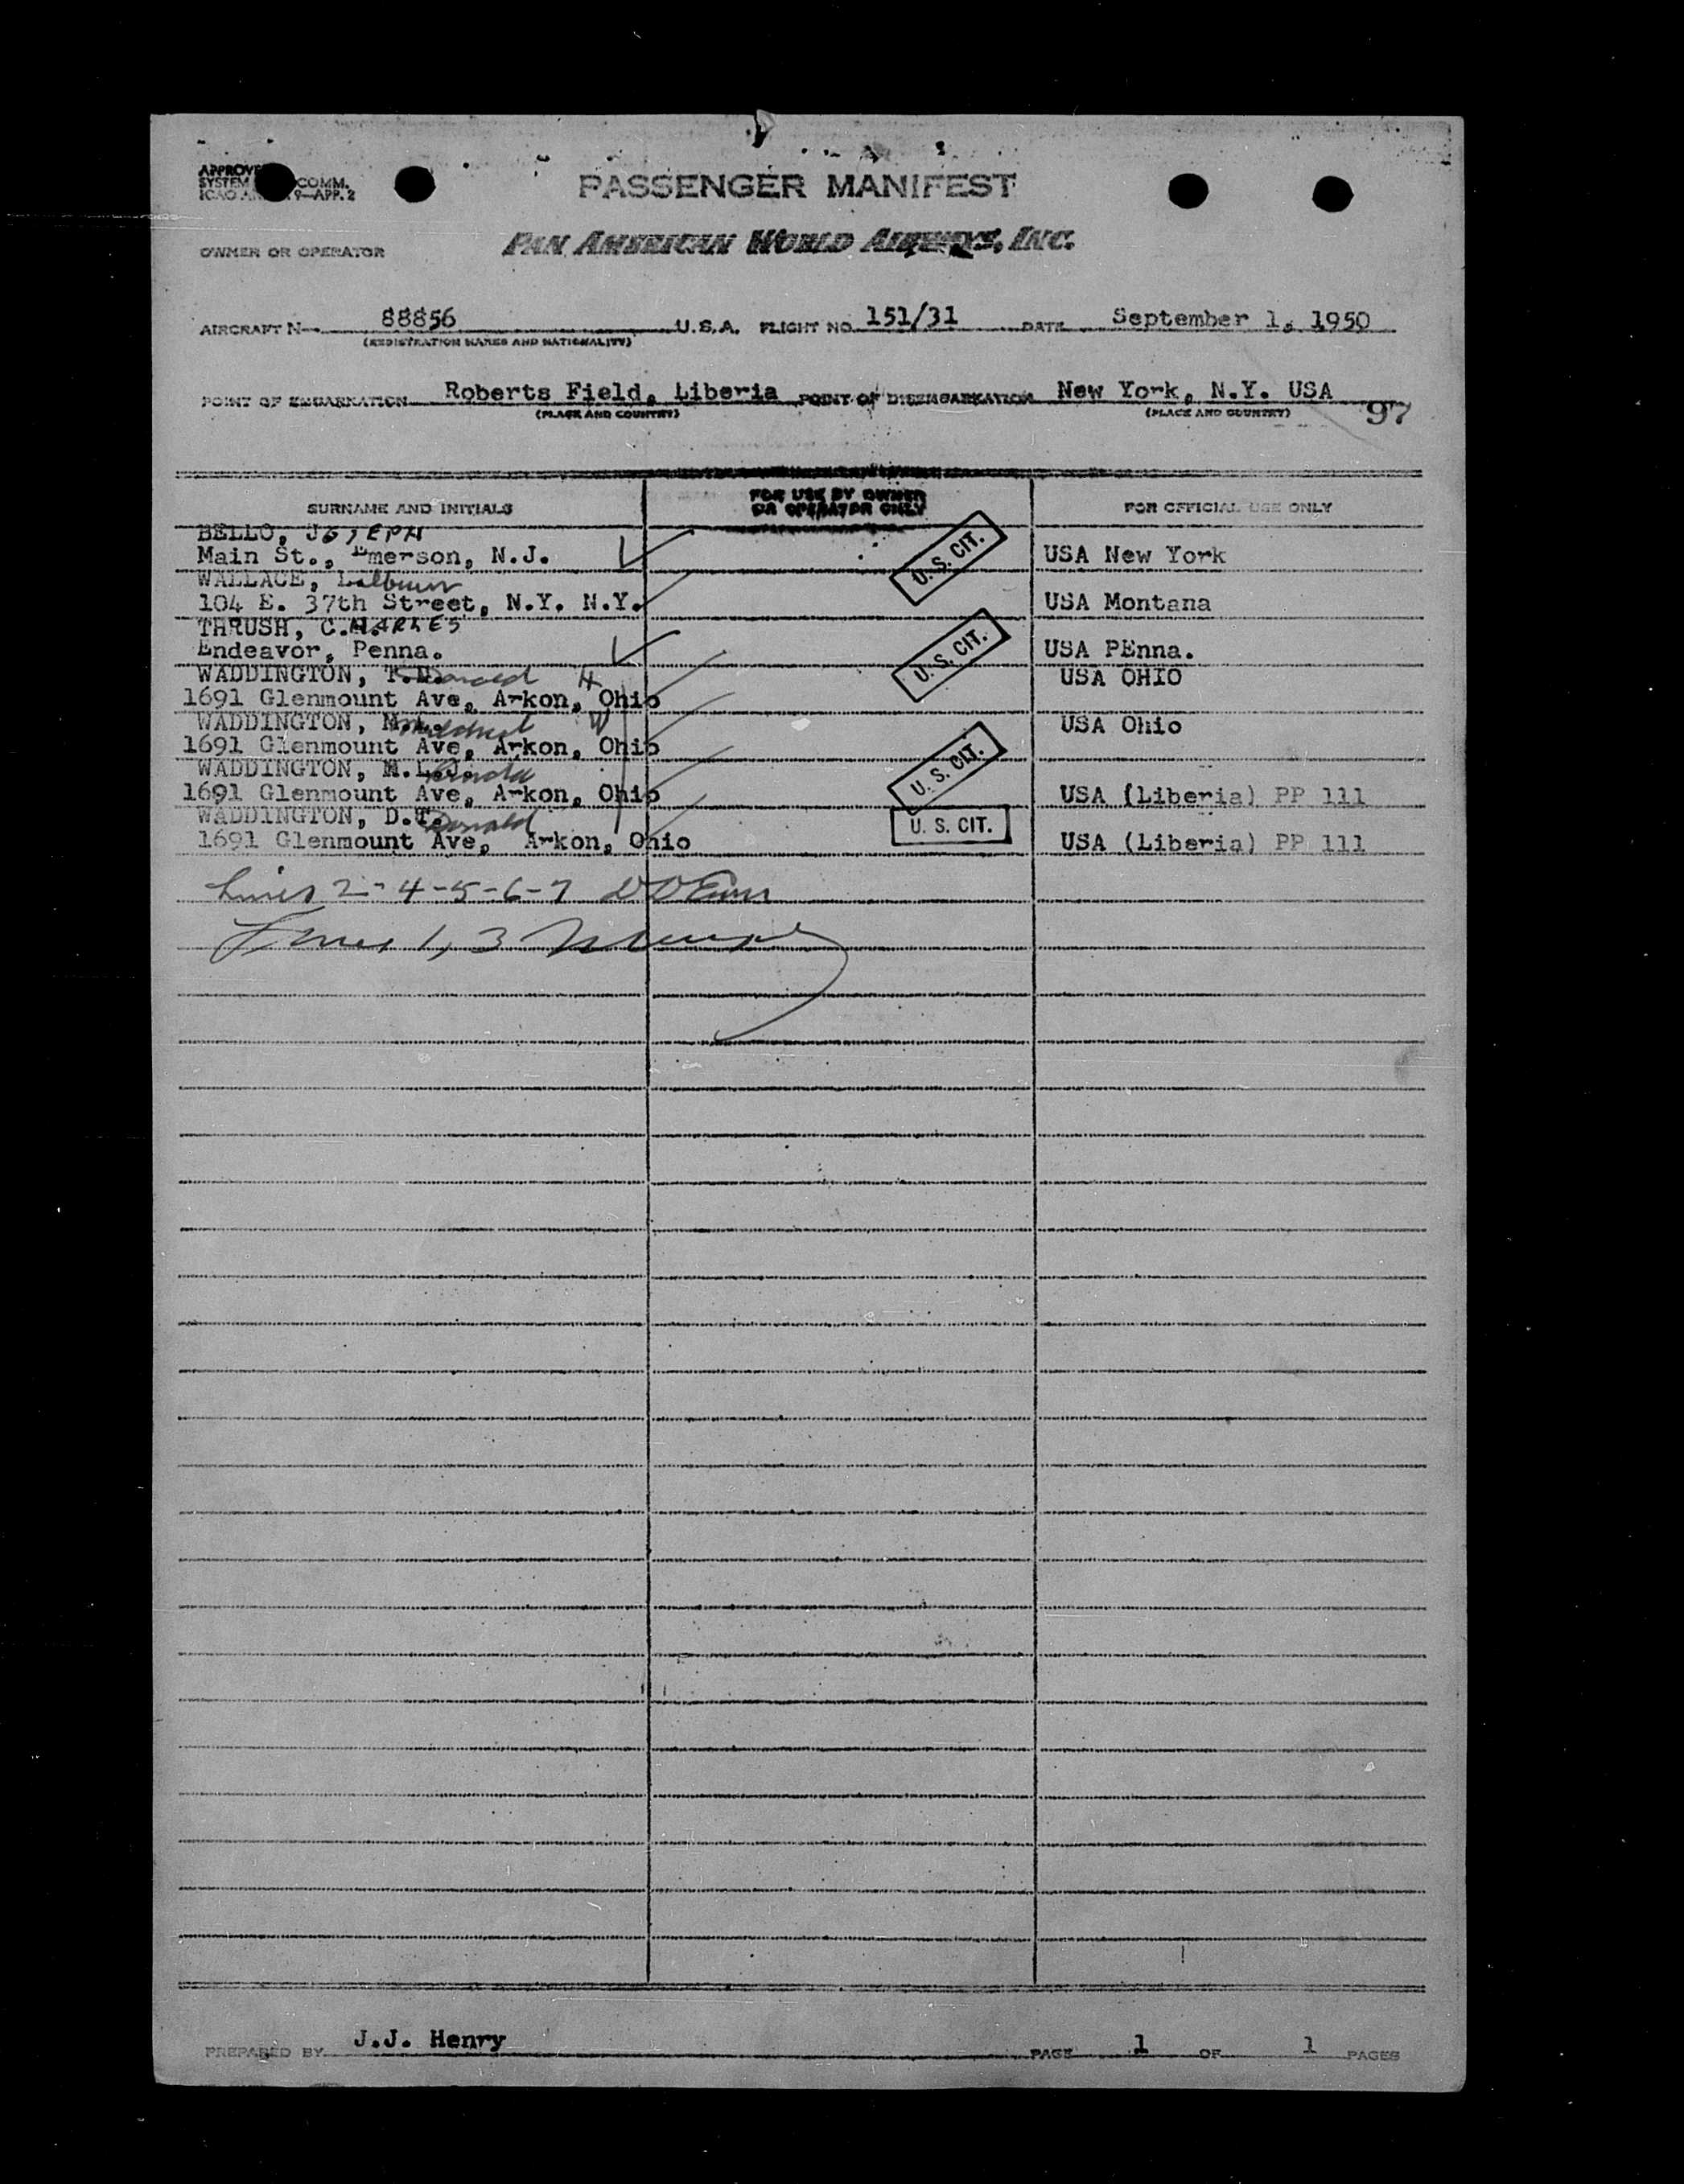 PASSENGER MANIFEST
COMM.
9—APP. 2
OWNER OR OPERATOR PAN AMERICAN WORLD AIRWAYS, INC.
AIRCRAFT N 88856 U.S.A. FLIGHT NO. 151/31 DATE September 1, 1950
(REGISTRATION MARKS AND NATIONALITY)
POINT OF EMBARKATION Roberts Field, Liberia POINT OF DISEMBARKATION New York, N.Y. USA
(PLACE AND COUNTRY) (PLACE AND COUNTRY) 97
SURNAME AND INITIALS FOR USE BY OWNER OR OPERATOR ONLY FOR OFFICIAL USE ONLY
BELLO, JOSEPH
Main St., Emerson, N.J. U. S. CIT. USA New York
WALLACE,
104 E. 37th Street, N.Y. N.Y. USA Montana
THRUSH, C.HARLES
Endeavor, Penna. U. S. CIT. USA PEnna.
WADDINGTON, H USA OHIO
1691 Glenmount Ave, Arkon, Ohio
WADDINGTON, Mildred W USA Ohio
1691 Glenmount Ave, Arkon, Ohio
WADDINGTON, M.L.J. U. S. CIT.
1691 Glenmount Ave, Arkon, Ohio USA (Liberia) PP 111
WADDINGTON, D.T. Donald
1691 Glenmount Ave, Arkon, Ohio U. S. CIT. USA (Liberia) PP 111
Lines 2-4-5-6-7
Lines 1, 3
PREPARED BY J.J. Henry PAGE 1 OF 1 PAGES